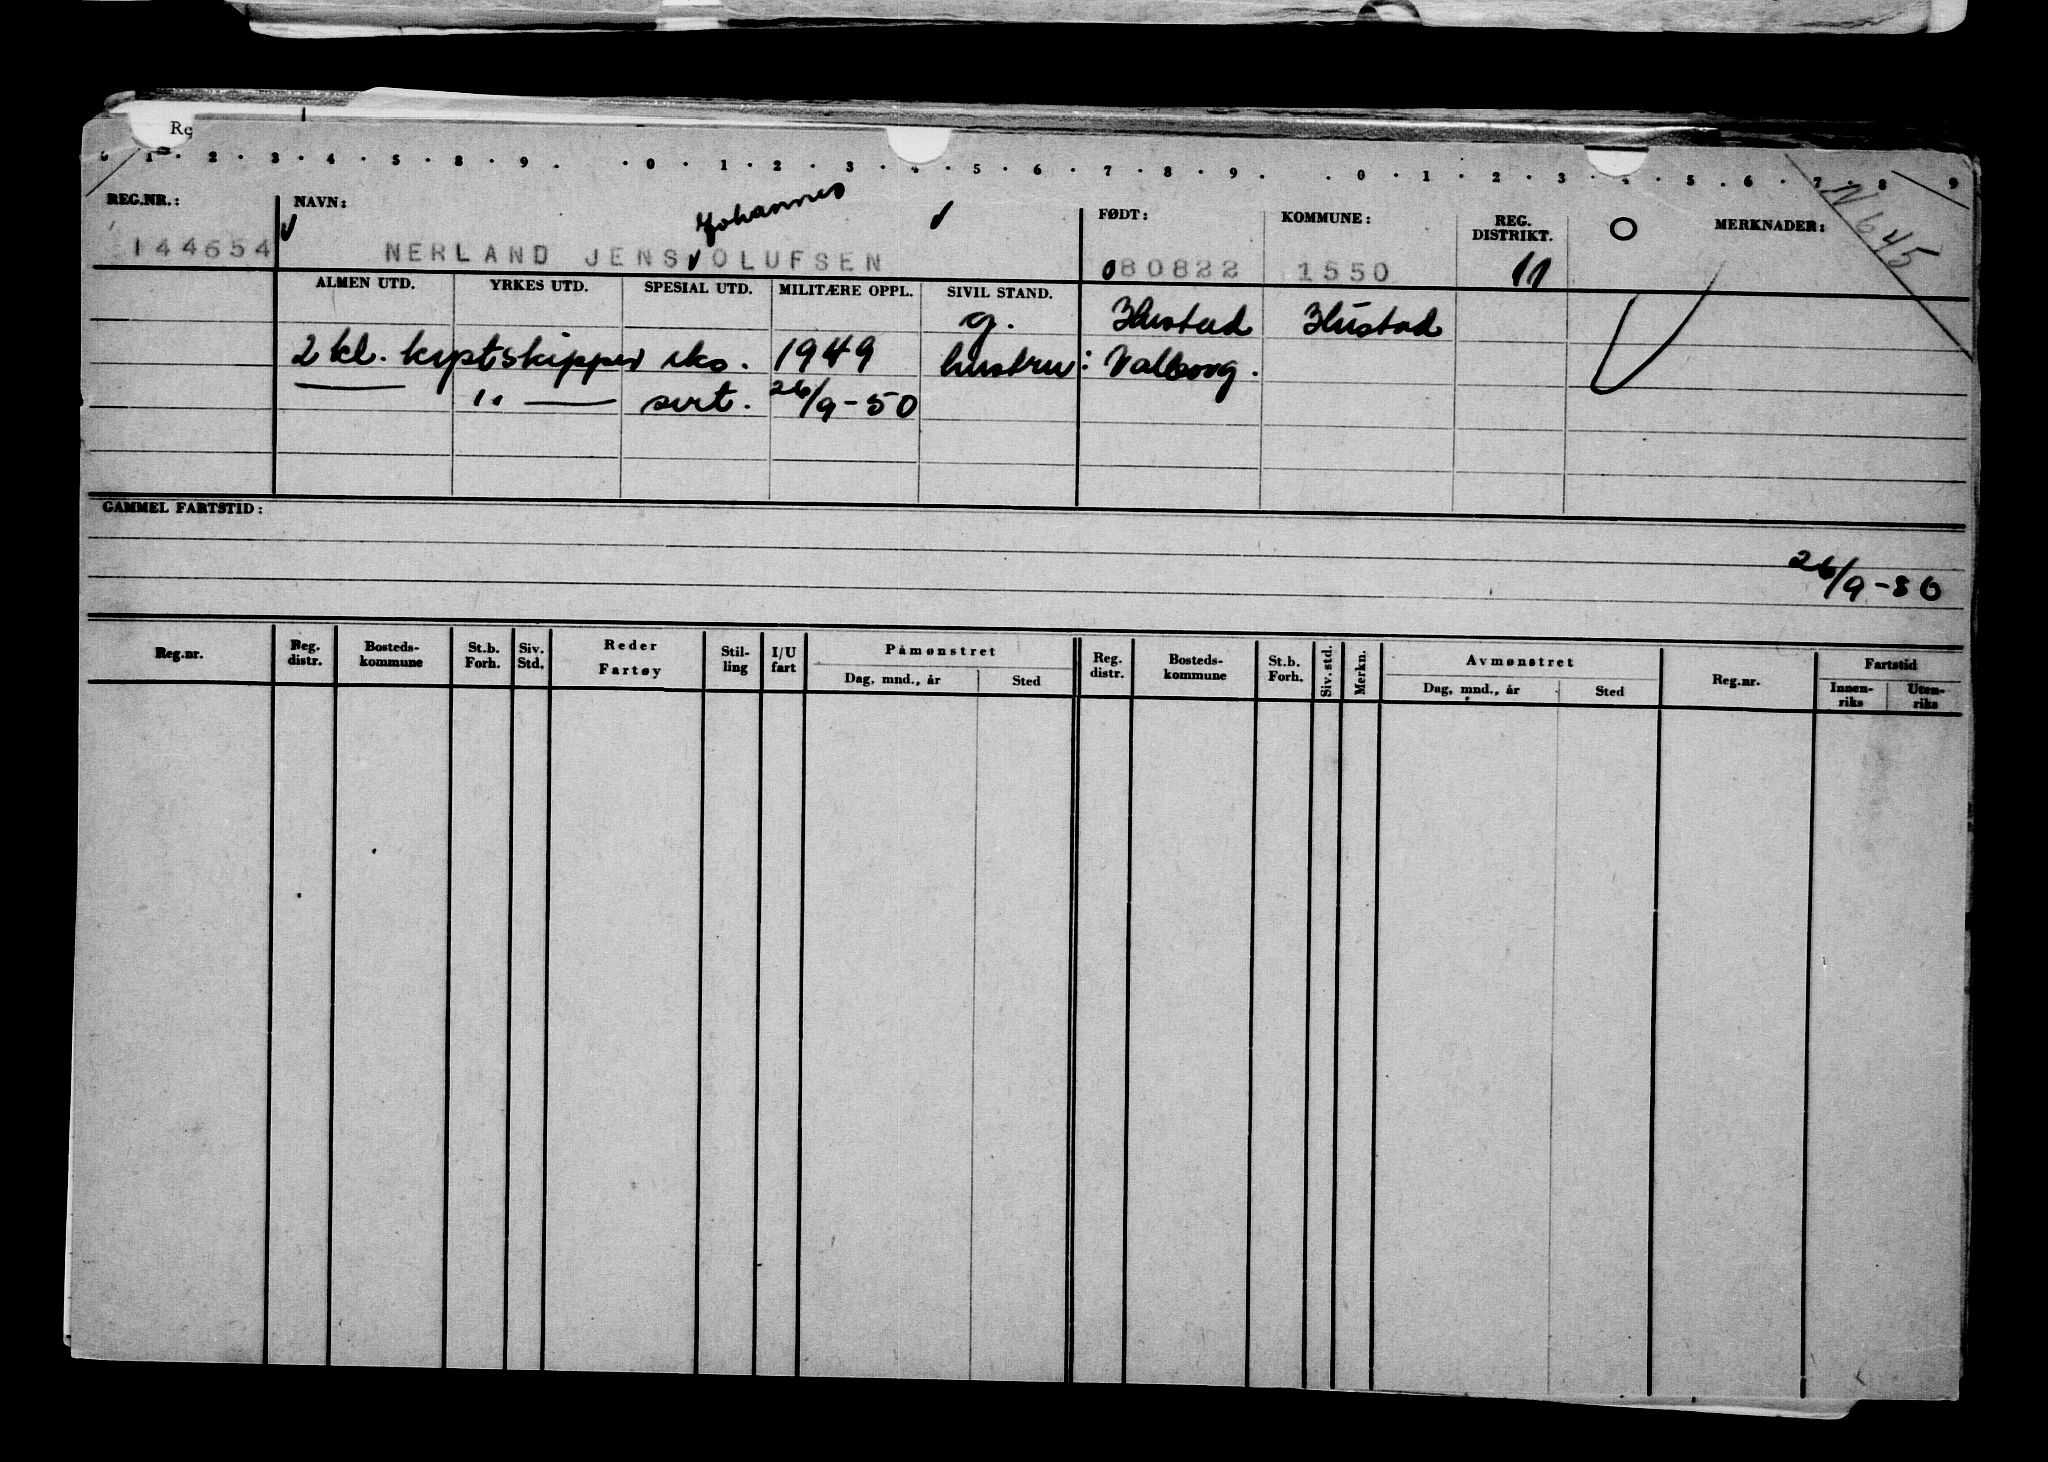 Re
0 1 . 2 . 3 . 4 . 5 . 8 . 9 . . 0 . 1 . 2 . 3 . 4 . 5 . 6 . 7 . 8 . 9 . . 0 . 1 . 2 . 3 . 4 . 5 . 6 . 7 . 8 9
REG.NR.: NAVN: Johannes FØDT: KOMMUNE: REG. DISTRIKT. O MERKNADER: N645
144654 NERLAND JENS OLUFSEN 080822 1550 11
ALMEN UTD. YRKES UTD. SPESIAL UTD. MILITÆRE OPPL. SIVIL STAND.
g. Hustad Hustad
2 kl. kystskipper eks. 1949 hustru: Valborg.
" sert. 26/9-50
GAMMEL FARTSTID:
26/9-50
Reg.nr. Reg. distr. Bosteds-kommune St.b. Forh. Siv. Std. Reder Fartøy Stil-ling I/U fart Påmønstret Reg. distr. Bosteds-kommune St.b. Forh. Siv. std. Merkn. Avmønstret Reg.nr. Fartstid
Dag, mnd., år Sted Dag, mnd., år Sted Innen-riks Uten-riks